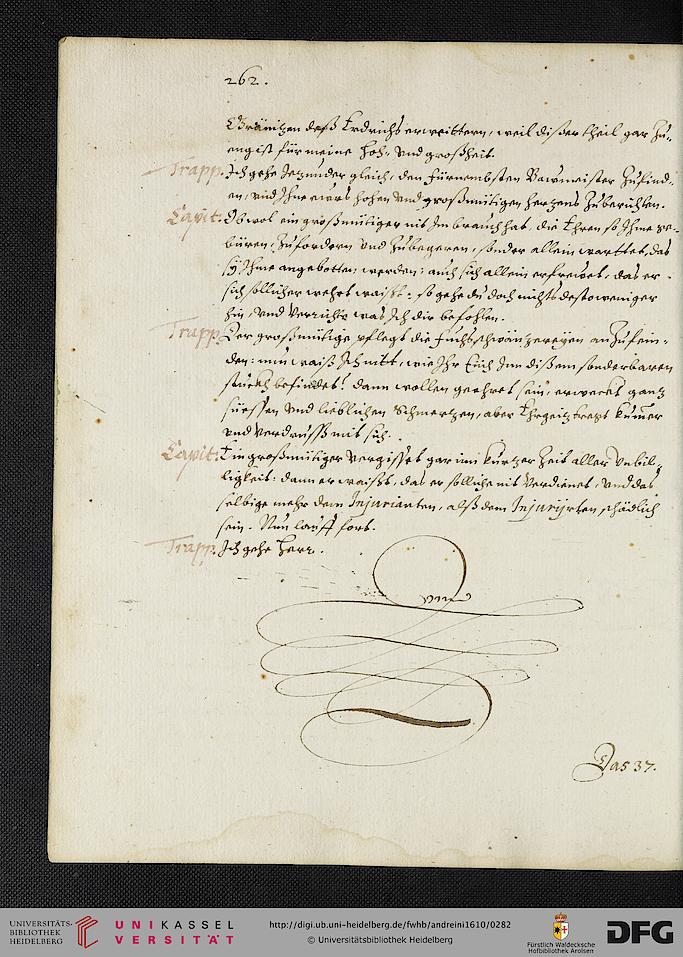 262.
Gränitzen deß Erdrichs erweittern, weil diser theil gar Zu-
eng ist für meine Hoh- und großheit.
Trapp. Ich gehe Jetzunder gleich, den fürnembsten Bawmeister Zufind-
en, und Ihne ewers hohen und großmütigen hertzens Zuberichten.
Capit: Obwol ein großmütiger nit Im brauch hat, die Ehren so Ihme ge-
büren, Zufordern und Zubegeren, sonder allein warttet, das
sÿ Ihme angebotten werden: auch sich allein erfrewet, das er
sich sollicher wehrt waißt. so gehe du doch nichts destoweniger
hin, und verricht was Ich dir befohlen.
Trapp. Der großmütige pflegt die fuchsschwäntzereyen anZufein-
den: nun waiß Ich nitt, wie Ihr Euch Inn disem sonderbaren
stuckh befindet! dann wollen geehret sein, erweckt gantz
süessen und lieblichen Schmertzen, aber Ehrgeitz kummer
und verdruß mit sich.
Capit: Ein großmütiger vergisset gar inn kurtzer Zeit aller Unbil-
ligkeit: dann er waißt, das er solliche nit verdienet, und das
selbige mehr dem Injurianten, alß dem Injurijrten schädlich
sein. Nun lauff fort.
Trapp. Ich gehe Herr.
Das 37.
UNIVERSITÄTS-
BIBLIOTHEK
HEIDELBERG
UNIKASSEL
VERSITÄT
http://digi.ub.uni-heidelberg.de/fwhb/andreini1610/0282
© Universitätsbibliothek Heidelberg
Fürstlich Waldecksche
Hofbibliothek Arolsen
DFG